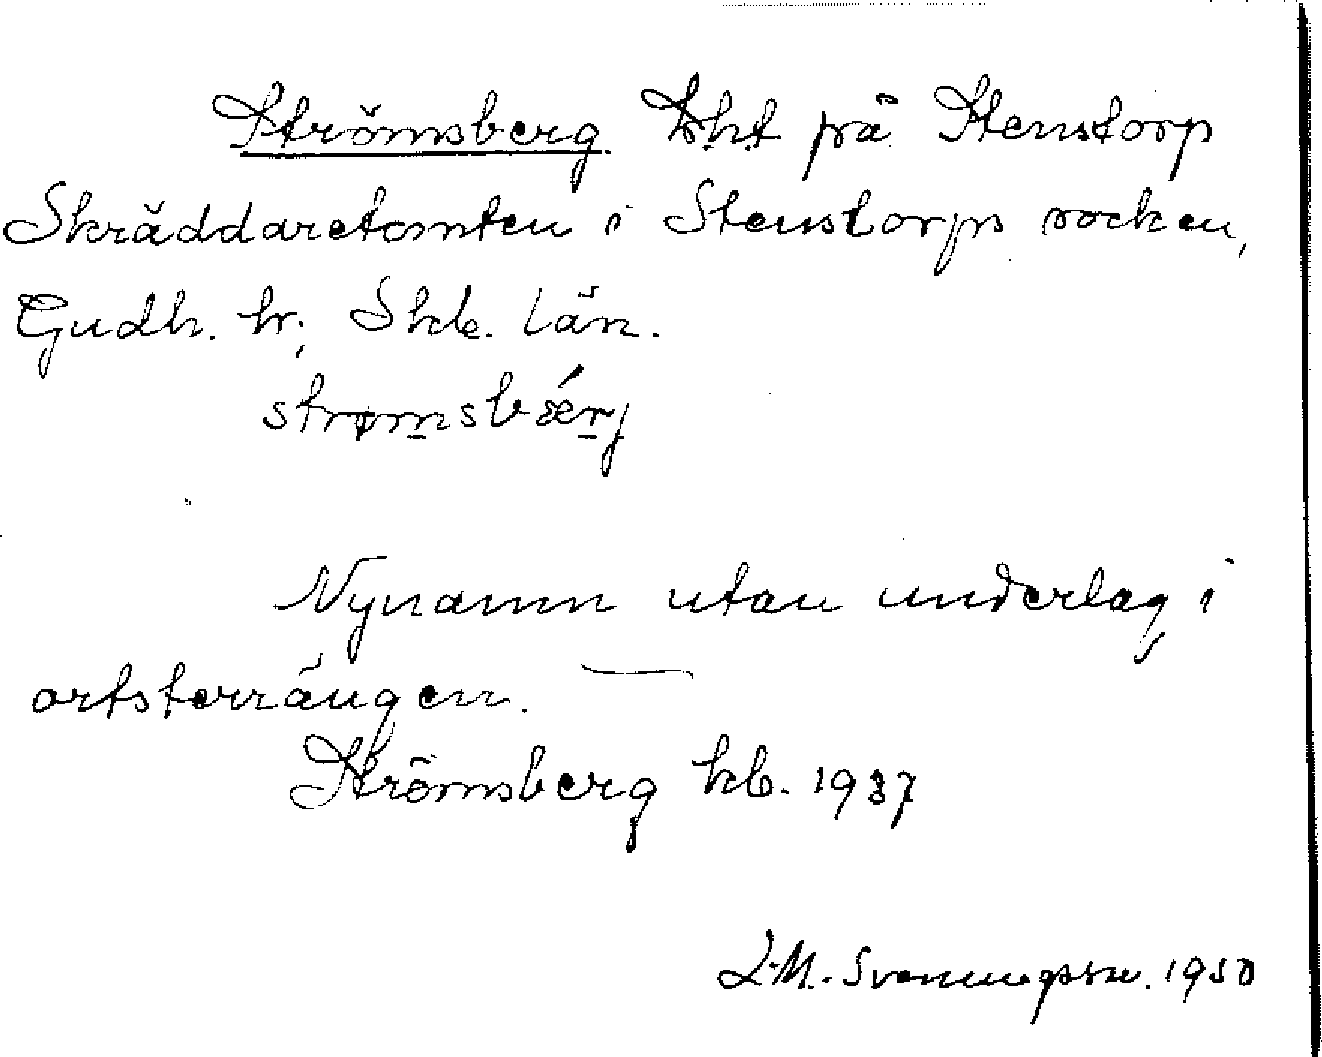 Strömsberg Lht på Stenstorp
Skräddaretomten i Stenstorps socken,
Gudh. hr, Skb. län.
strømsbǽrj
Nynamn utan underlag i
ortsterrängen.
Strömsberg kb. 1937
L.M. Svenungsson. 1950